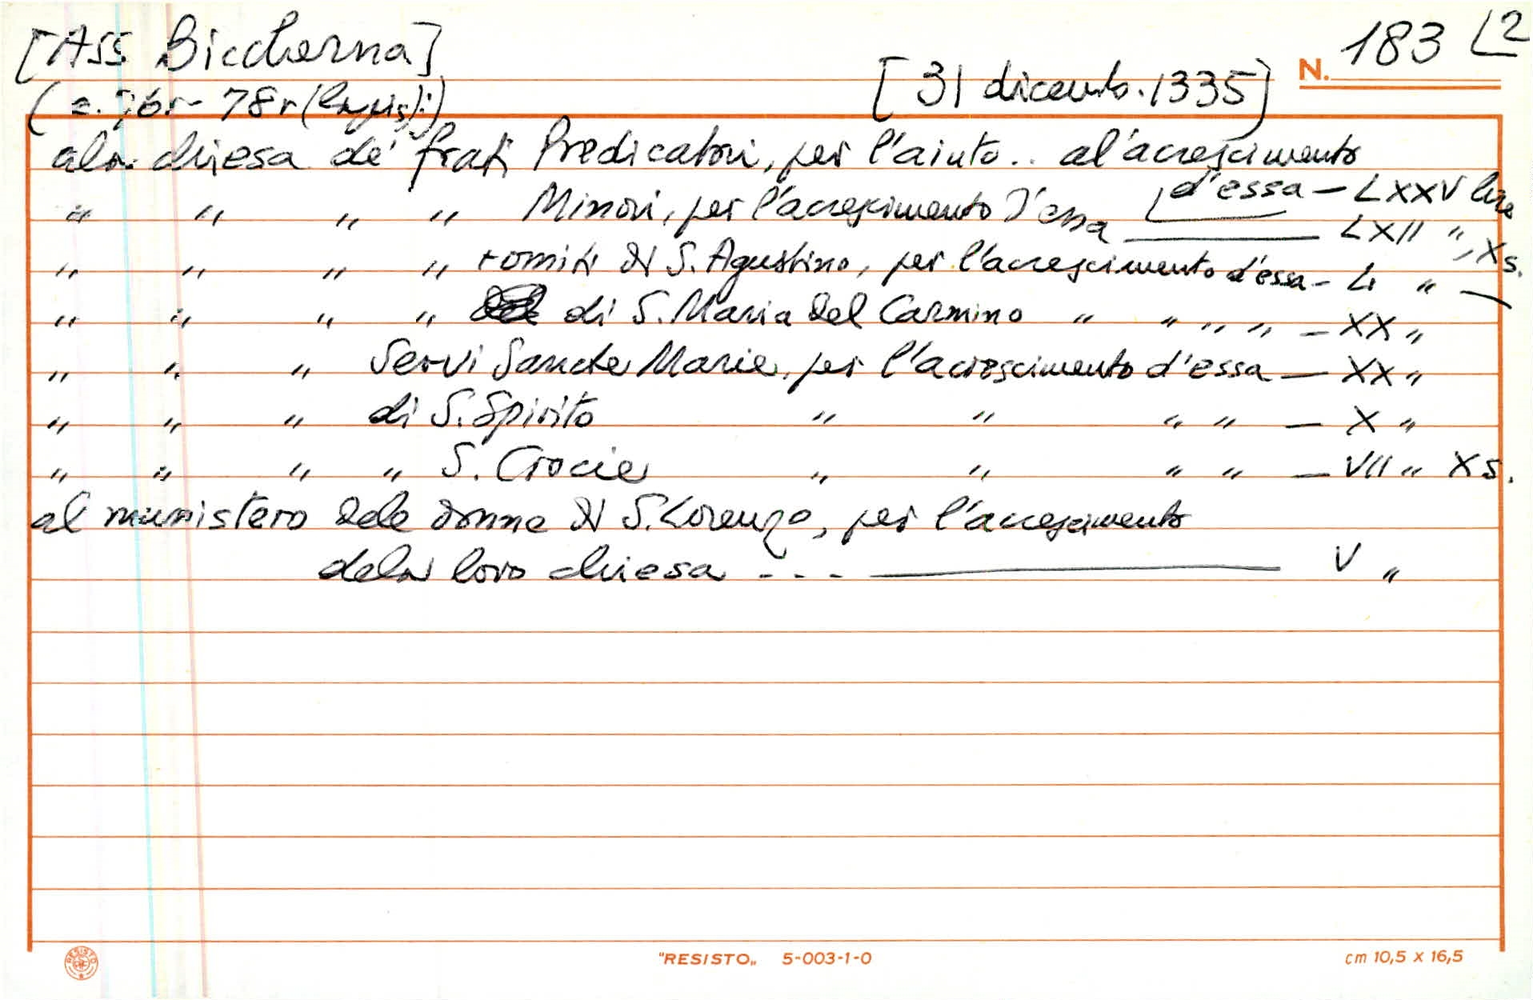 [ASS Biccherna]
N. 183 L2
(c. 76r - 78r (lapis):)
[31 dicemb. 1335]
ala chiesa de' frati Predicatori, per l'aiuto .. al'acrescimento
d'essa — LXXV lire
" " " " Minori, per l'acrescimento d'essa — LXII ", X s.
" " " " romiti di S. Agustino, per l'acrescimento d'essa - L "
" " " " di S. Maria del Carmino " " " " - XX "
" " " Servi Sancte Marie, per l'acrescimento d'essa — XX "
" " " di S. Spirito " " " " — X "
" " " " S. Crocie " " " " — VII " X s.
al munistero dele donne di S. Lorenzo, per l'acrescimento
dela loro chiesa - - - — V "
"RESISTO" 5-003-1-0
cm 10,5 x 16,5